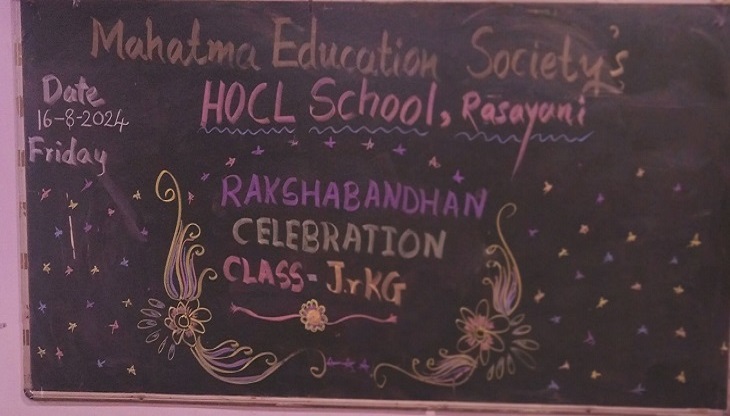 Mahatma Education Society's
HOCL School, Rasayani
Date
16-8-2024
Friday
RAKSHABANDHAN
CELEBRATION
CLASS- JrKG